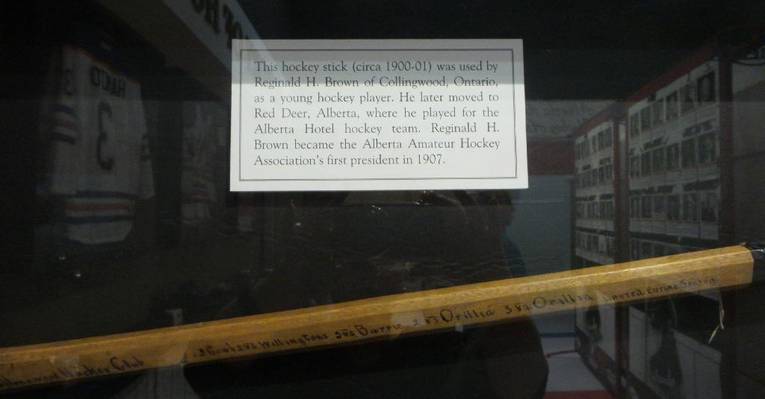 HOF HO
HAMO
3
This hockey stick (circa 1900-01) was used by
Reginald H. Brown of Collingwood, Ontario,
as a young hockey player. He later moved to
Red Deer, Alberta, where he played for the
Alberta Hotel hockey team. Reginald H.
Brown became the Alberta Amateur Hockey
Association's first president in 1907.
Hockey Club Goals vs Wellingtons 3 vs Barrie 2 vs Orillia 3 vs Orillia